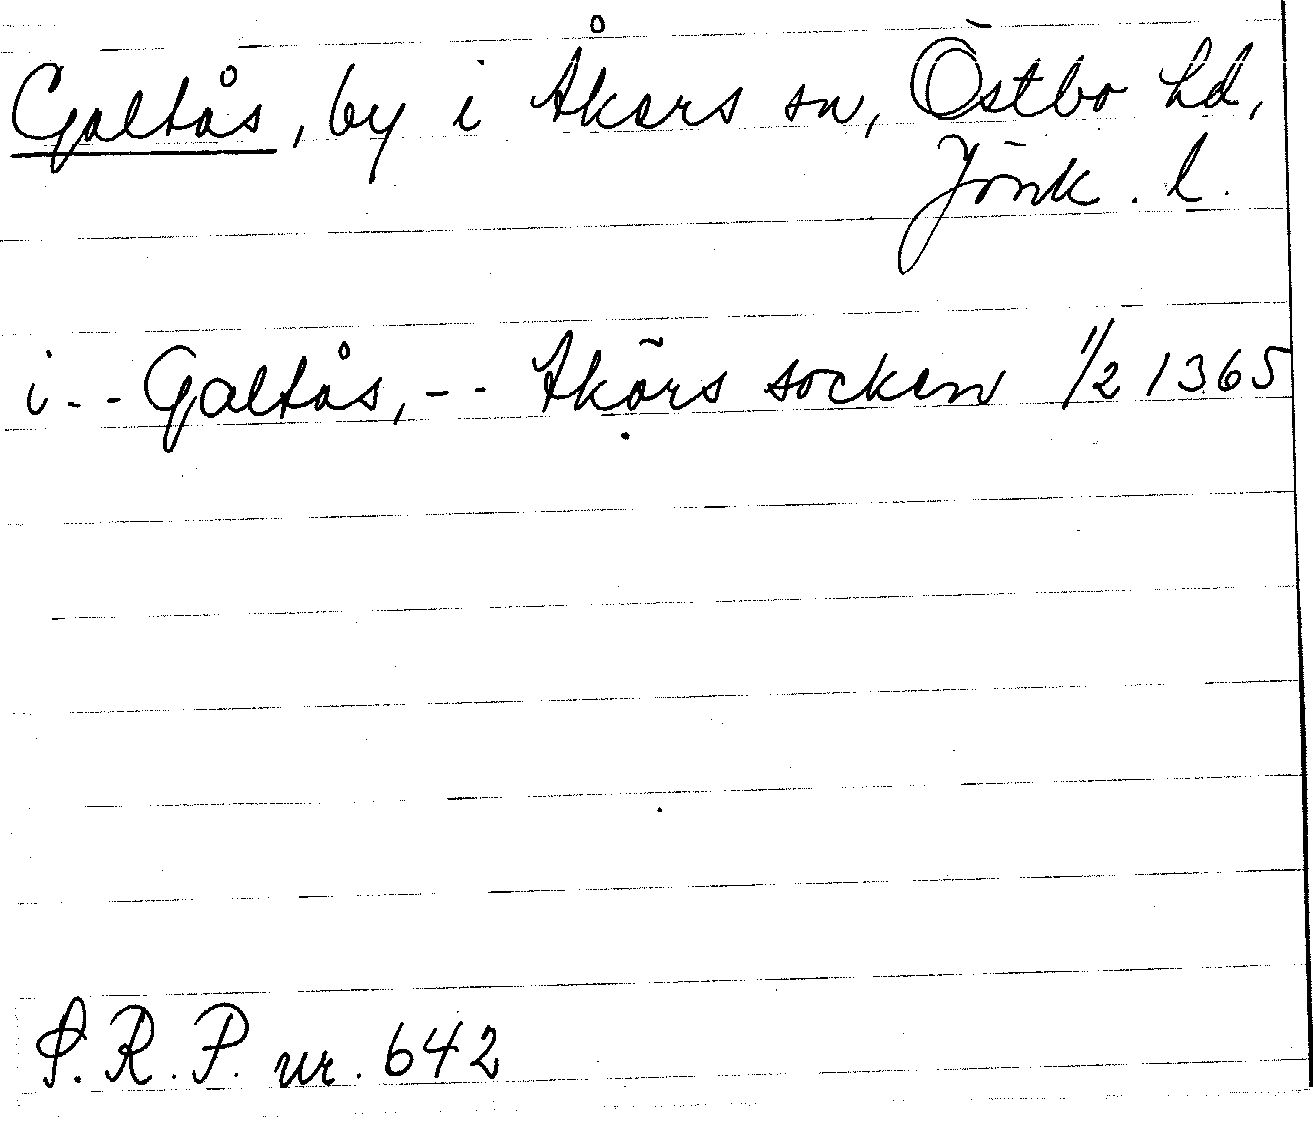 Galtås, by i Åkers sn, Östbo hd,
Jönk. l.
i - - Galtås, - - Akörs socken 1/2 1365
S. R. P. nr. 642